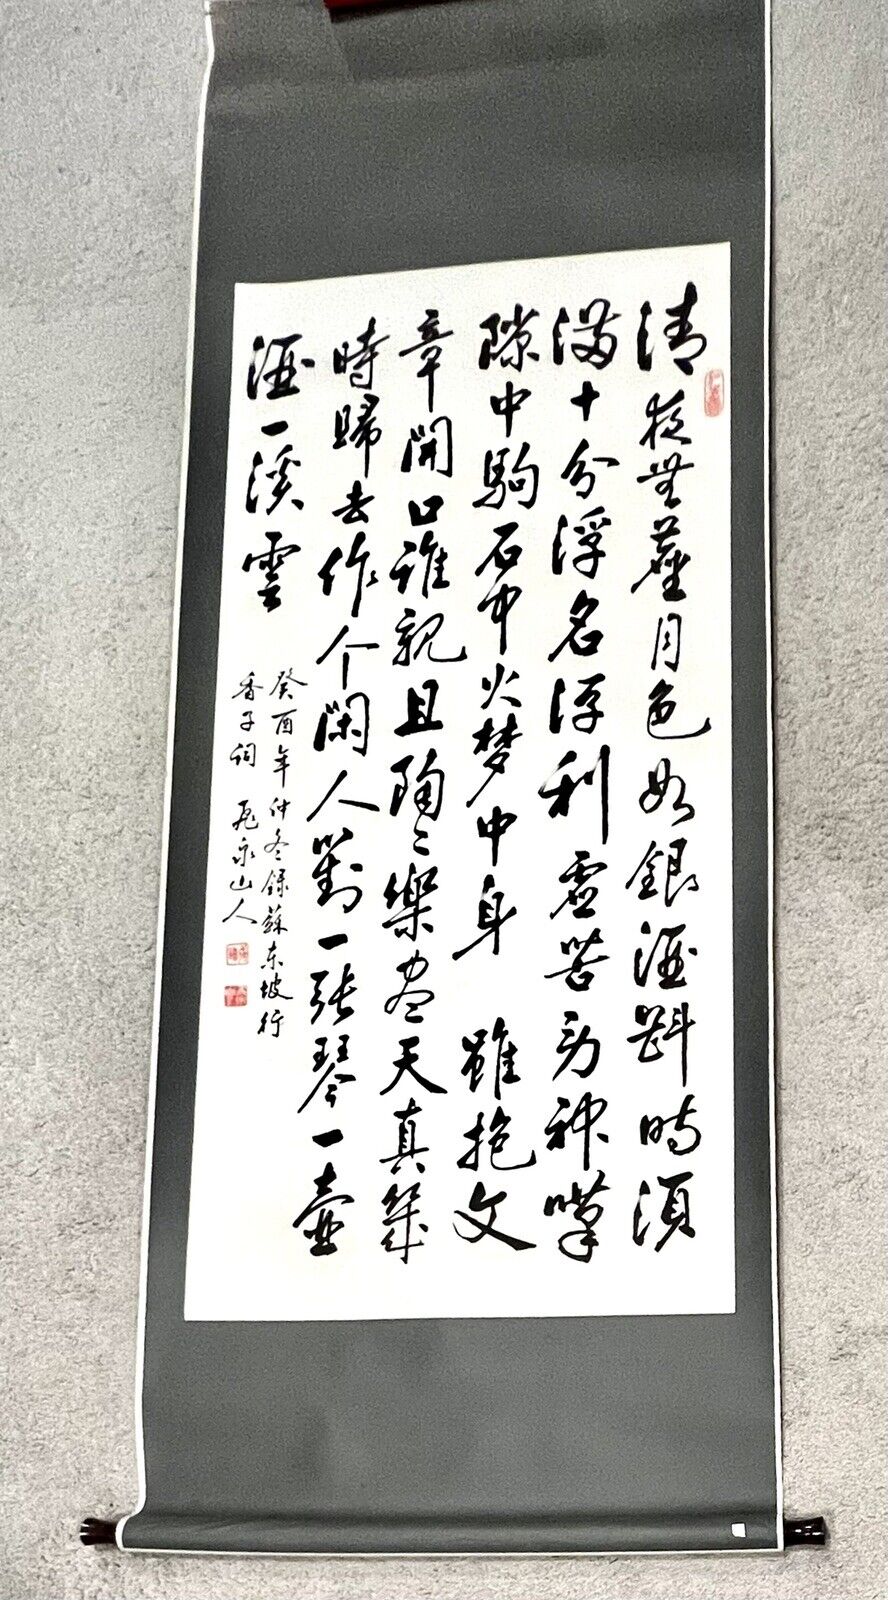 清夜無塵月色如銀酒斟時須
滿十分浮名浮利虛苦勞神嘆
隙中駒石中火梦中身 雖抱文
章開口誰親且陶々樂盡天真幾
時歸去作个閑人對一張琴一壺
酒一溪雲
癸酉年仲冬録蘇东坡行
香子词 泉山人